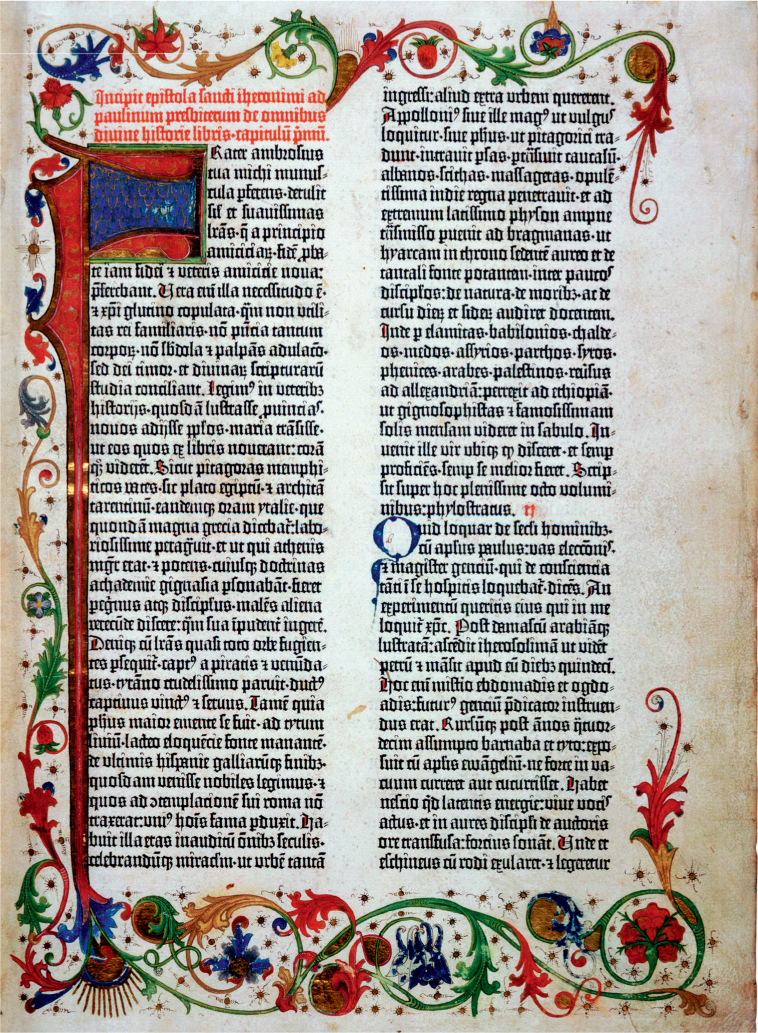 Incipit epistola sancti iheronimi ad
paulinum presbiterum de omnibus
divine historie libris·capitulū p̄mū.
Frater ambrosius
tua michi munus-
cula ꝑferens·detulit
sił et suavissimas
lr̄as·q̄ a principio
amiciciaꝝ·fidē ꝓba-
te iam fidei ⁊ veteris amicicie nova:
p̄ferebant. Vera eni̅ illa necessitudo ē·
⁊ xp̄i glutino copulata·qm̄ non utili-
tas rei familiaris·nō p̄ncia tantum
corpoꝝ·nō sb̄dola ⁊ palpās adulac̄o·
sed dei timor·et divinaꝝ scripturarū
studia conciliant. Legimꝰ in veteribꝫ
historijs·quosdā lustrasse ꝓvinciaˢ·
novos adijsse pp̄los·maria trāsisse·
ut eos quos ex libris noverant: corā
qꝫ viderēt. Sicut pitagoras memphi-
ticos vates·sic plato egiptū·⁊ architā
tarentinū·eandemqꝫ oram ytalie·que
quondā magna grecia dicebat̄: labo-
riosissime peragravit: et ut qui athenis
mgr̄ erat·⁊ potens·cuiusqꝫ doctrinas
achademie gignasia ꝑsonabāt·fieret
pegrinus atqꝫ discipłus·malēs aliena
verecūde discere: qm̄ sua īpudent̄ ingerē.
Deniqꝫ cū lr̄as quasi toto orbe fugien-
tes ꝑsequit̄·captꝰ a piratis ⁊ venūda-
tus·tyrāno crudelissimo paruit·ductꝰ
captivus vinctꝰ ⁊ servus. Tamē quia
phūs maior emente se fuit·ad tytum
livīu·lacteo eloquēcie fonte manantē·
de ultimis hispanie galliarūqꝫ finibꝫ·
quosdam venisse nobiles legimus·⁊
quos ad ↄtemplacionē sui roma nō
traxerat: uniꝰ hoīs fama ꝑduxit. Ha-
buit illa etas inauditū ōnibꝫ seculis·
celebrandūqꝫ miracłm·ut urbē tantā
ingressi: aliud extra urbem quererent.
Appolloniꝰ sive ille magꝰ ut vulgus
loquitur·sive phūs·ut pitagorici tra-
dunt·intravit ꝑsas·ꝑtrāsivit caucasū·
albanos·scithas·massagetas·opulē-
tissima indie regna penetravit·et ad
extremum latissimo physon ampne
trāsmisso ꝑvenit ad bragmanas·ut
hyarcam in throno sedentē aureo et de
tantali fonte potantem·inter paucoˢ
discipłos: de natura·de moribꝫ·ac de
cursu dieꝝ et sideꝝ audiret docentem.
Inde ꝑ elamitas·babilonios·chalde-
os·medos·assyrios·parthos·syros·
phenices·arabes·palestinos·rev̄sus
ad allexandriā: perrexit ad ethiopiā·
ut gignosophistas ⁊ famosissimam
solis mensam videret in sabulo. In-
venit ille vir ubiqꝫ q̷ disceret·et semꝑ
proficiēs·semꝑ se melior fieret. Scrip-
sit super hoc plenissime octo volumi-
nibus: phylostratus. II
Quid loquar de secłi hominibꝫ·
cū apłus paulus: vas electōniˢ·
⁊ magister genciū·qui de consciencia
tāti ī se hospitis loquebat̄·dicēs. An
experimentū queritis eius qui in me
loquit̄ xp̄c. Post damascū arabiāqꝫ
lustratā: ascēdit iherosolimā ut vidēt
petrū ⁊ māsit apud eū diebꝫ quindeci̅.
Hoc eni̅ mistio ebdomadis et ogdo-
adis: futurꝰ genciū p̄dicator instruen-
dus erat. Rursūqꝫ post ānos q̄tuor-
decim assumpto barnaba et tyto: expo-
suit cū apłis ewāgeliū·ne forte in va-
cuum curreret aut cucurrisset. Habet
nescio qd̄ latentis energie: vive vociˢ
actus·et in aures discipłi de auctoris
ore transfusa: forcius sonāt. Unde et
eschineus cū rodi exularet·⁊ legeretur